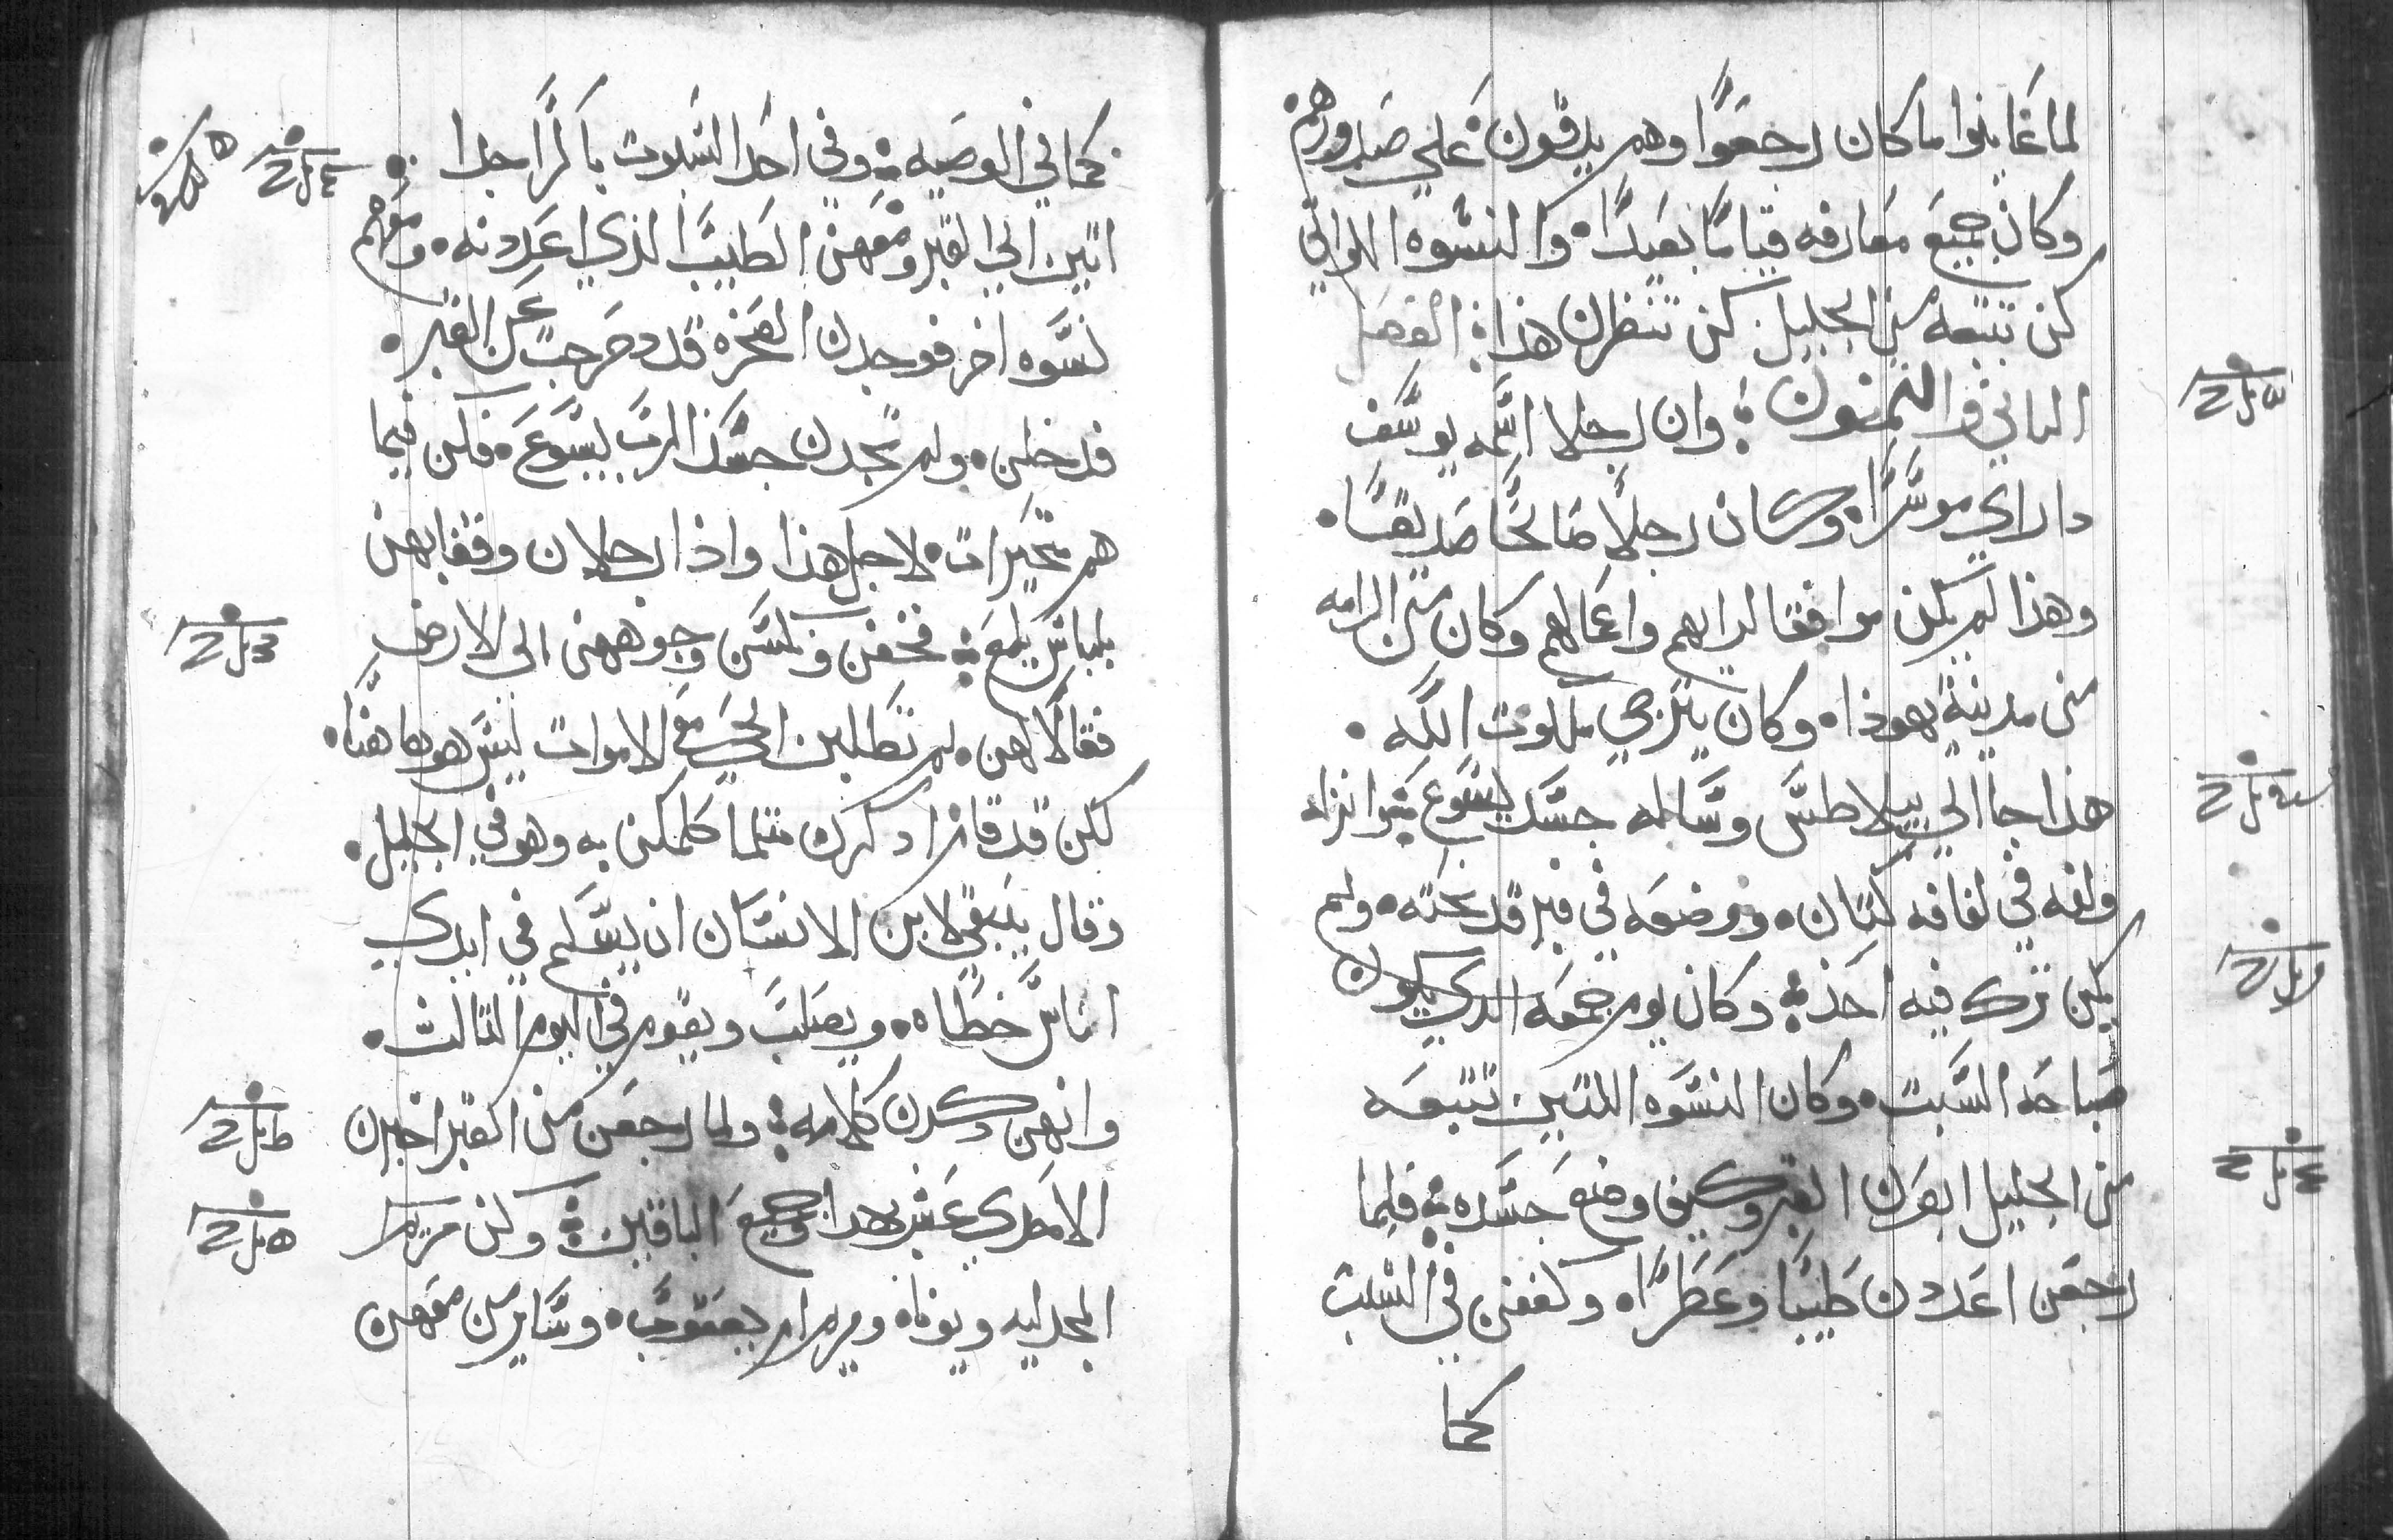 لما عاينوا ما كان رجعوا وهم يدقون علي صدورهم
وكان جميع معارفه قياما بعيدا والنسوه اللواتي
كن تتبعه من الجليل كن تنظرن هذا الفصل
التاني والتمنون وان رجلا اسمه يوسف
داراي موسرا وكان رجلا صالحا صديقا
وهذا لم يكن موافقا لرايهم واعمالهم وكان من الرامه
من مدينة يهوذا وكان يترجي ملكوت الله
هذا جا الي بيلاطس وساله جسد يسوع ثم انزله
ولفه في لفافه كتان ووضعه في قبر قد نحته ولم
يكن ترك فيه احد وكان يوم جمعه الدي يكون
صباحه السبت وكان النسوه اللتين تتبعه
من الجليل ابصرن القبر وكيف وضع جسده فلما
رجعن اعددن طيبا وعطرا وكففن في السبت
كما
كما في الوصيه وفي احد السبوت باكرا جدا
اتين الي القبر ومعهن الطيب الذي اعددنه ومعهم
نسوه اخر فوجدن الصخره قد دحرجت عن القبر
فدخلن ولم تجدن جسد الرب يسوع فكن فيما
هم متحيرات لاجل هذا واذا رجلان وقفا بهن
بلباس يلمع فخفن ونكسن وجوههن الي الارض
فقالا لهن لم تطلبن الحي مع الاموات ليس هو هاهنا
لكن قد قام اذكرن متلما كلمكن به وهو في الجليل
وقال ينبغي لابن الانسان ان يسلم في ايدي
اناس خطاه ويصلب ويقوم في اليوم التالت
وانهن ذكرن كلامه ولما رجعن من القبر اخبرن
الاحدي عشر بهدا وجميع الباقين وكن مريم
المجدليه ويونا ومريم ام يعقوب وساير من معهن